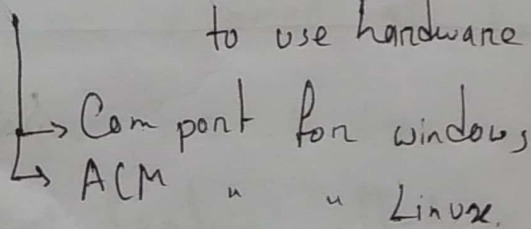 to use hardware
→ Com port for windows
→ ACM " " Linux.